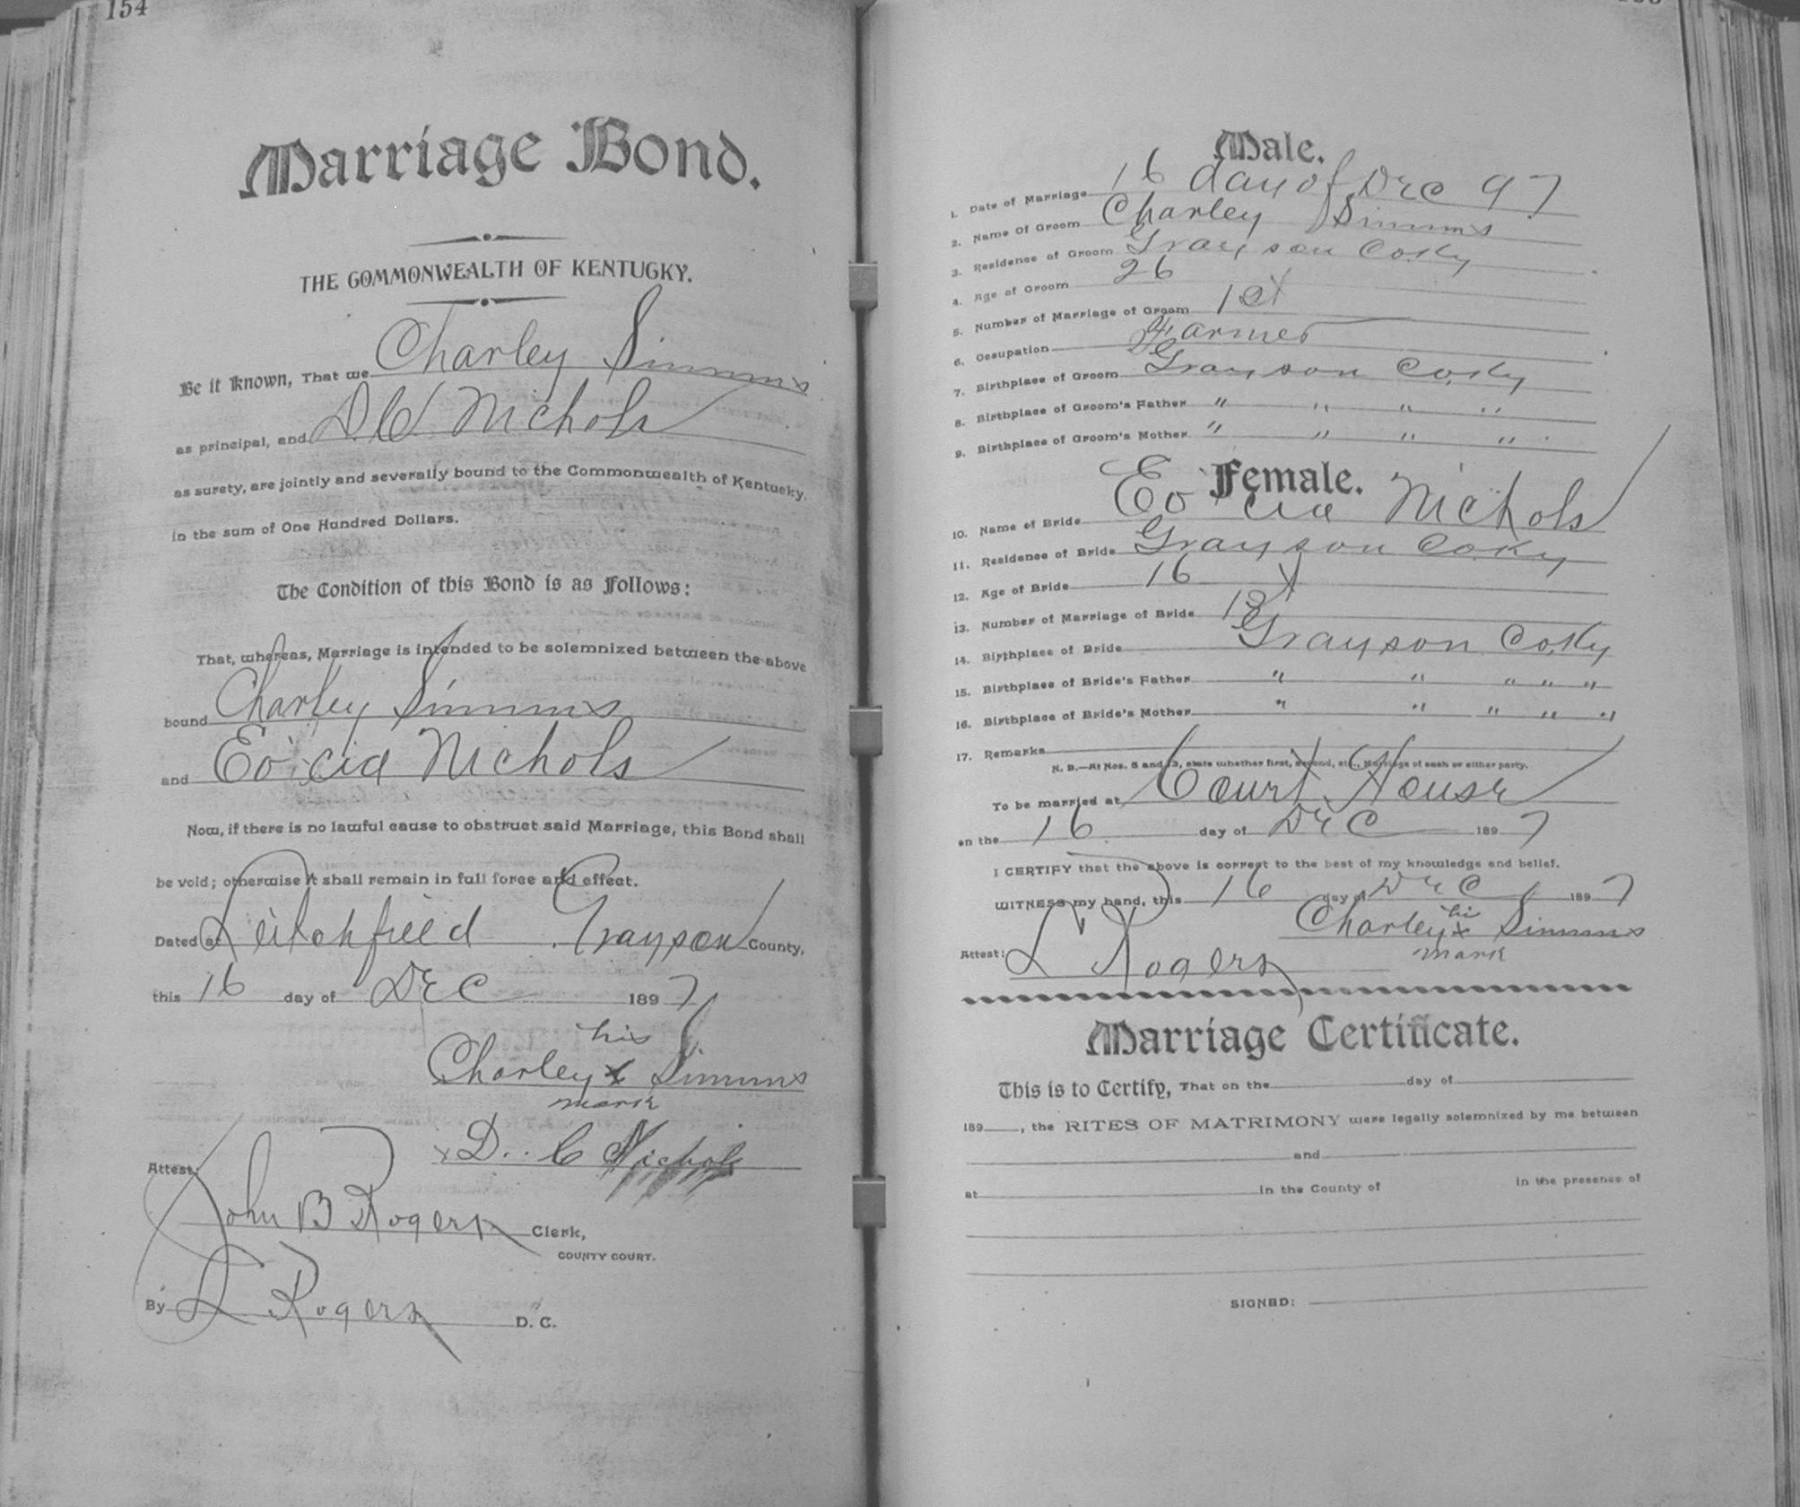 154
Marriage Bond.
THE COMMONWEALTH OF KENTUCKY.
Be it Known, That we Charley Simms
as principal, and D C Nichols
as surety, are jointly and severally bound to the Commonwealth of Kentucky,
in the sum of One Hundred Dollars.
The Condition of this Bond is as Follows:
That, whereas, Marriage is intended to be solemnized between the above
bound Charley Simms
and Eo cia Nichols
Now, if there is no lawful cause to obstruct said Marriage, this Bond shall
be void; otherwise it shall remain in full force and effect.
Dated at Leitchfield Grayson County,
this 16 day of Dec 1897
his
Charley x Simms
mark
x D. C Nichols
Attest:
John B Rogers Clerk,
COUNTY COURT.
By L Rogers D. C.
Male.
1. Date of Marriage 16 day of Dec 97
2. Name Of Groom Charley Simms
3. Residence of Groom Grayson Co Ky
4. Age of Groom 26
5. Number of Marriage of Groom 1st
6. Occupation Farmer
7. Birthplace of Groom Grayson Co. Ky
8. Birthplace of Groom's Father " " " "
9. Birthplace of Groom's Mother " " " "
Female.
10. Name of Bride Eo cia Nichols
11. Residence of Bride Grayson Co Ky
12. Age of Bride 16
13. Number of Marriage of Bride 1st
14. Birthplace of Bride Grayson Co. Ky
15. Birthplace of Bride's Father " " " " "
16. Birthplace of Bride's Mother " " " " "
17. Remarks
N. B.—At Nos. 5 and 13, state whether first, second, etc., Marriage of each or either party.
To be married at Court House
on the 16 day of Dec 1897
I CERTIFY that the above is correct to the best of my knowledge and belief.
WITNESS my hand, this 16 day of Dec 1897
his
Charley x Simms
mark
Attest: L Rogers
Marriage Certificate.
This is to Certify, That on the day of
189 , the RITES OF MATRIMONY were legally solemnized by me between
and
at in the County of in the presence of
SIGNED: